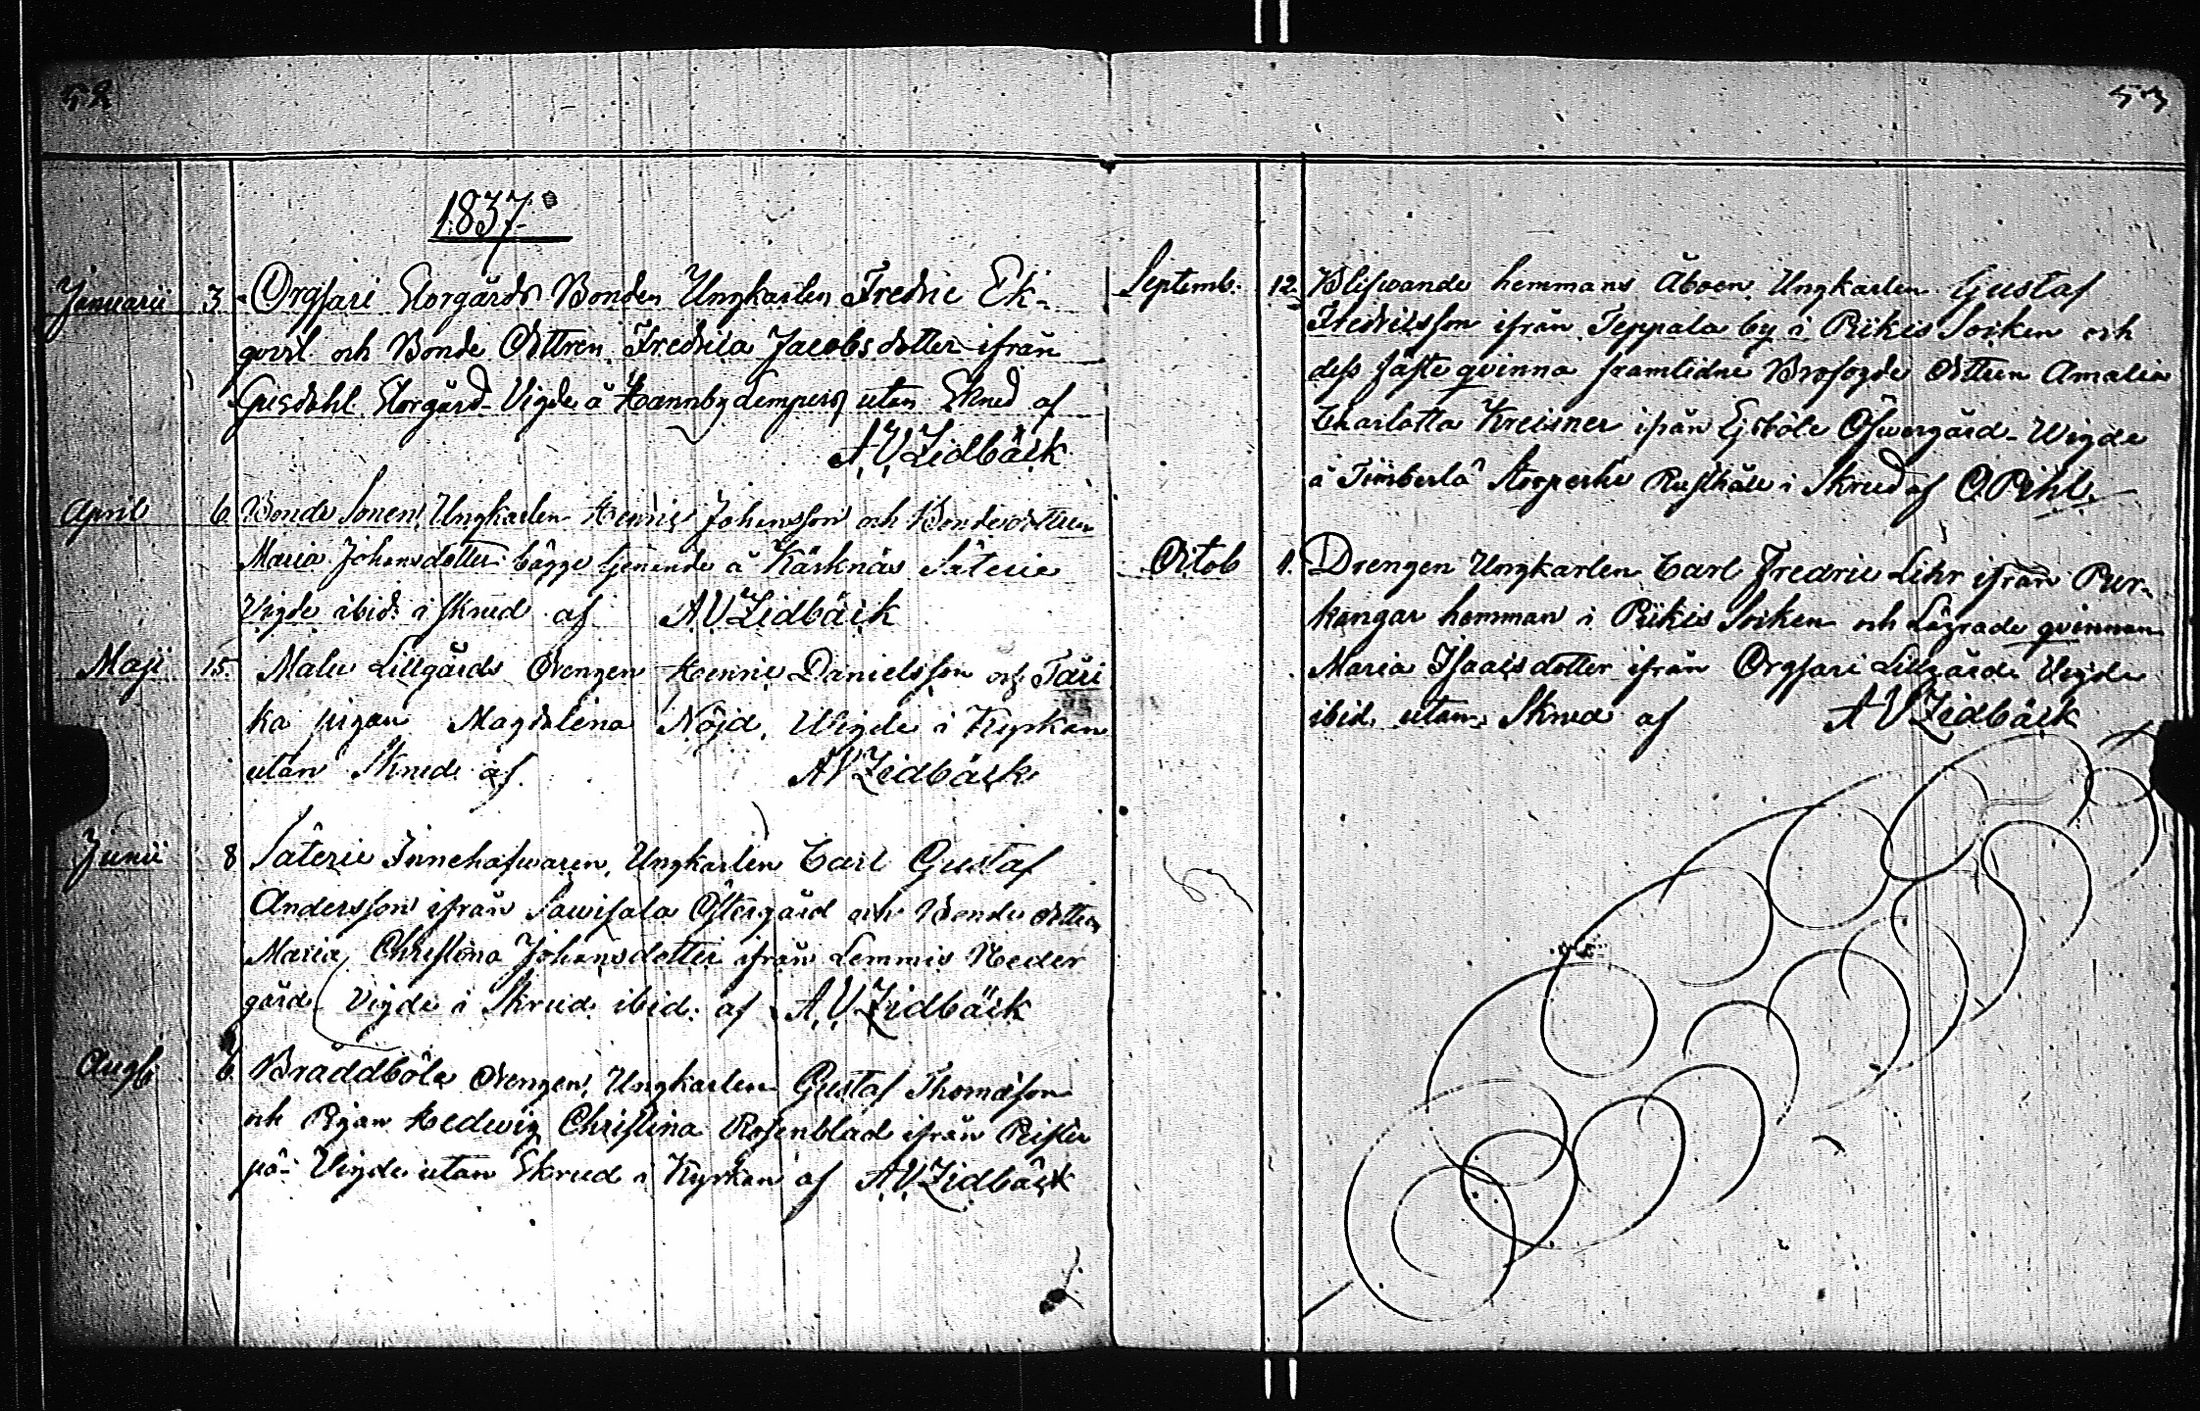 52
1837
Januarii 3. Orgsari Storgårds Bonden Ungkarlen Fredric Ek-
qvist och Bonde Dottren Fredrica Jacobsdotter ifrån
Storgård - Vigde å utan Skrud af
A.V. Lidbäck
April 6. Bonde Sonen, Ungkarlen Henric Johansson och Bondedottren
Maria Johansdotter bägge tjenande å Kärknäs Säterie
Vigde ibid: i Skrud af A V Lidbäck
Maji 15. Malu Lillgårds Drengen Henric Danielsson och Täri
ka pigan Magdalena Nöjd, Wigde i Kyrkan
utan Skrud af A V Lidbäck
Junii 8. Säterie Innehafwaren, Ungkarlen Carl Gustaf
Andersson ifrån Sawisalo Östergård och Bonde dottren
Maria Christina Johansdotter ifrån Lemmis Neder
gård. Vigde i Skrud. ibid: af A.V. Lidbäck
Augti 6. Bräddböle Drengen, Ungkarlen Gustaf Thomasson
och Pigan Hedwig Christina Rosenblad ifrån Rister
pä - Vigde utan Skrud i Kyrkan af A.V. Lidbäck
53
Septemb. 12. Blifwande hemmans Åboen, Ungkarlen Gustaf
Fredricsson ifrån Teppala by i Pikis Soiken och
dess fäste qvinna framlidne Brofogde dottren Amalia
Charlotta Kreisner ifrån Ejsböle Öfwergård - Wigde
å Timberla Storperhe Rusthåll i Skrud af C. Pihl.
Octob 1. Drengen Ungkarlen Carl Fredric Lihr ifrån Pur-
kangar hemman i Pikis Soiken och Lägrade qvinnan
Maria Isaacsdotter ifrån Orgsari Lillgård. Vigde
ibid. utan Skrud af A V Lidbäck